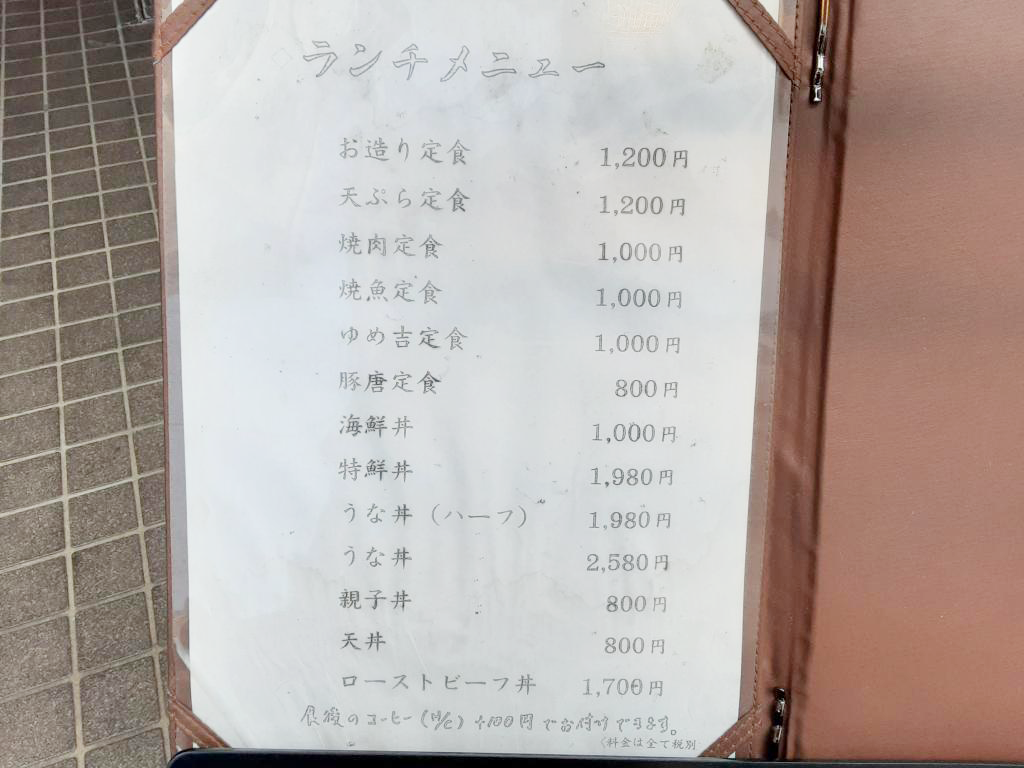 ランチメニュー
お造り定食 1,200円
天ぷら定食 1,200円
焼肉定食 1,000円
焼魚定食 1,000円
ゆめ吉定食 1,000円
豚唐定食 800円
海鮮丼 1,000円
特鮮丼 1,980円
うな丼（ハーフ） 1,980円
うな丼 2,580円
親子丼 800円
天丼 800円
ローストビーフ丼 1,700円
食後のコーヒー(H/C) +100円でお付けできます。
（料金は全て税別